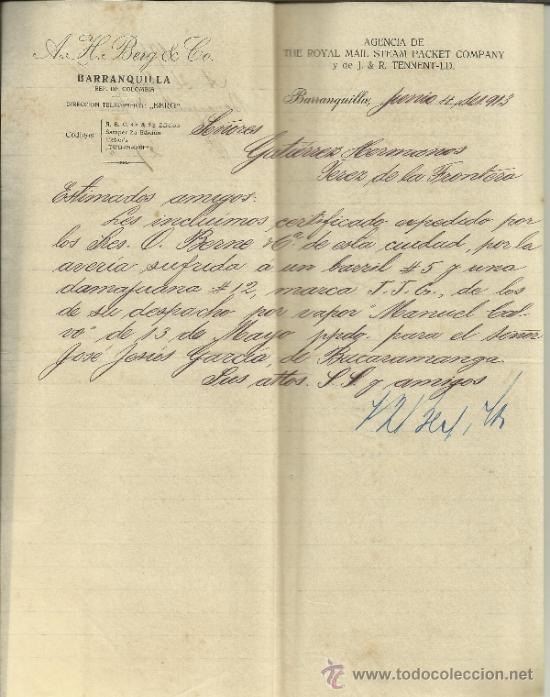 A. H. Berg & Co.
BARRANQUILLA
REP. DE COLOMBIA
DIRECCION TELEGRAFICA: „BERG"
Códigos:
A. B. C. 4a & 5a Edición
AGENCIA DE
THE ROYAL MAIL STEAM PACKET COMPANY
y de J. & R. TENNENT-LD.
Barranquilla, Junio 4 de 1913
Señores
Gutiérrez Hermanos
Jerez de la Frontera
Estimados amigos:
Les incluimos certificado expedido por
los Sres. O. Berne & Cª de esta ciudad, por la
avería sufrida á un barril #5 y una
damajuana #12, marca J. J. G., de los
de su despacho por vapor "Manuel Cal-
vo" de 13 de Mayo ppdo. para el señor
José Jesús García de Bucaramanga.
Sus attos. S. S. y amigos
todocoleccion
www.todocoleccion.net